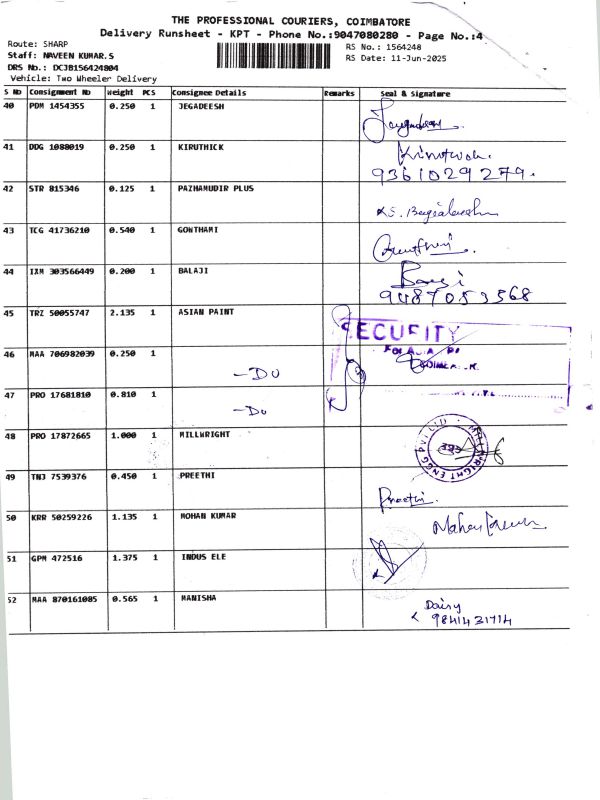 THE PROFESSIONAL COURIERS, COIMBATORE
Delivery Runsheet - KPT - Phone No.:9047080280 - Page No.:4
Route: SHARP
RS No.: 1564248
Staff: NAVEEN KUMAR.S
RS Date: 11-Jun-2025
DRS No.: DCJB156424804
Vehicle: Two Wheeler Delivery
S No Consignment No Weight PCS Consignee Details Remarks Seal & Signature
40 PDM 1454355 0.250 1 JEGADEESH
41 DDG 1088019 0.250 1 KIRUTHICK
9361029279.
42 STR 815346 0.125 1 PAZHAMUDIR PLUS
43 TCG 41736210 0.540 1 GOWTHAMI
44 IXM 303566449 0.200 1 BALAJI
9487053568
45 TRZ 50055747 2.135 1 ASIAN PAINT
SECURITY
46 MAA 706982039 0.250 1
-Do
47 PRO 17681810 0.810 1
-Do
48 PRO 17872665 1.000 1 MILLWRIGHT
49 TNJ 7539376 0.450 1 PREETHI
Preethi.
50 KRR 50259226 1.135 1 MOHAN KUMAR
51 GPM 472516 1.375 1 INDUS ELE
52 MAA 870161085 0.565 1 MANISHA
Daisy
9841431714